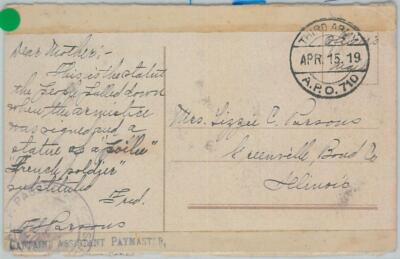 Dear Mother:-
This is the statue
the Jerry pulled down
when the armistice
was signed and a
statue of a "Poilu"
"French soldier"
substituted
Fred.
F Parsons
CAPTAIN ASSISTANT PAYMASTER,
THIRD ARMY
APR. 15. 19
A.P.O. 710
Mrs. Lizzie C. Parsons
Greenville, Bond Co
Illinois